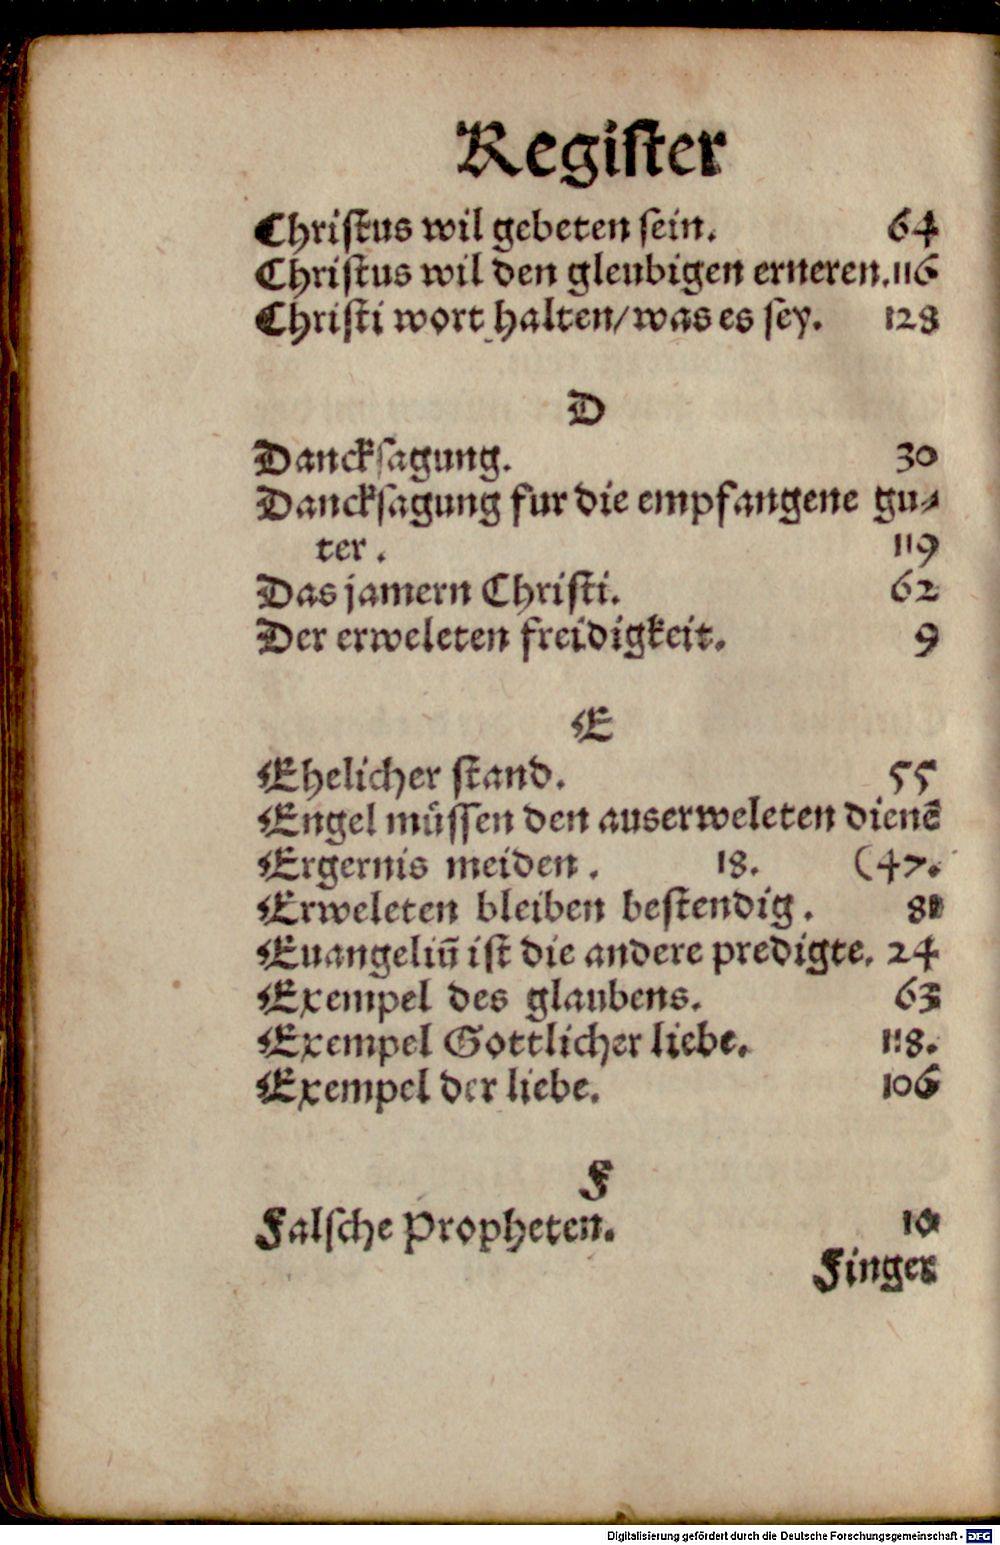 Regiſter
Chriſtus wil gebeten ſein. 64
Chriſtus wil den gleubigen erneren. 116
Chriſti wort halten/was es ſey. 128
D
Danckſagung. 30
Danckſagung fur die empfangene gu⸗
ter. 119
Das jamern Chriſti. 62
Der erweleten freidigkeit. 9
E
Ehelicher ſtand. 55
Engel muͤſſen den auserweleten dienẽ
Ergernis meiden. 18. (47.
Erweleten bleiben beſtendig. 81
Euangeliũ iſt die andere predigte. 24
Exempel des glaubens. 63
Exempel Gottlicher liebe. 118.
Exempel der liebe. 106
F
Falſche Propheten. 10
Finger
Digitalisierung gefördert durch die Deutsche Forschungsgemeinschaft - DFG